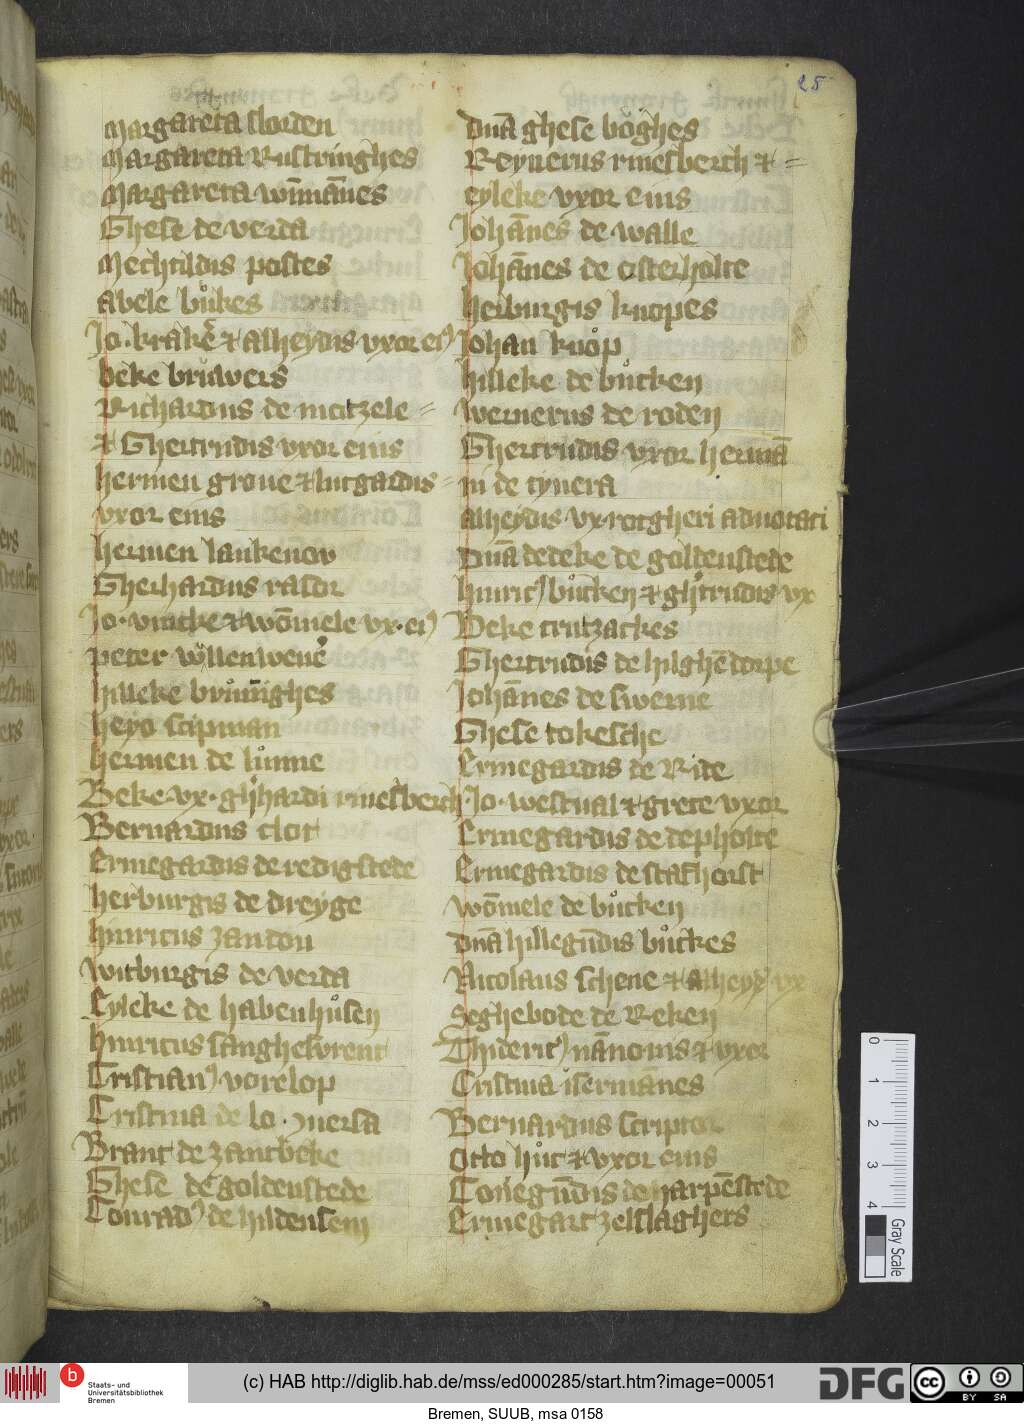 25
Margareta slorden
Margareta Rustringhes
Margareta wīmānes
Ghese de verda
Mechtildis postes
Abele bůkes
Jo. brake & alheydis vxor ei9
beke bruwers
Richardus de motzele =
& Ghertrudis vxor eius
hermen groue & lutgardis =
vxor eius
hermen lankenow
Gherhardus rasor
Jo. vincke & wōmele vx. ei9
peter wllenweue
hilleke brůninghes
heyo scipman
hermen de lůnne
Beke vx. ghhardi rinesberch
Bernardus clot
Ermegardis de redigstede
herburgis de dreyge
hinricus zandou
witburgis de verda
Eyleke de habenhůsen
hinricus sanghehwrent
Cristian9 vorelop
Cristina de lo
Brant de zantbeke
Ghese de goldenstede
Conrad9 de hildensem
Dnā ghese boghes
Reynerus rinesberch & =
eyleke vxor eius
Johānes de walle
Johānes de osterholte
herburgis knopes
Johan knop
hilleke de bůcken
wernerus de roden
Ghertrudis vxor hermā
ni de tynera
Alheydis vx rotgheri aduocati
Dnā dedeke de goldenstede
hinric9 bůcken & ghtrudis vx
Beke crutzackes
Ghertrudis de hilghēdorpe
Johānes de swerne
Ghese tokesche
Ermegardis de Ride
Jo. westual & grete vxor
Ermegardis de depholte
Ermegardis de stafhorst
wōmele de bůcken
Dnā hillegūdis bůckes
Nicolaus schene & alheyd vx
Seghebode de Reken
Thideric9 nānonis & vxor
Cristina isermānes
Bernardus scriptor
Otto hůt & vxor eius
Conegūdis de harpēstede
Ermegart zelslaghers
0
1
2
3
4
Gray Scale
b
Staats- und
Universitätsbibliothek
Bremen
(c) HAB http://diglib.hab.de/mss/ed000285/start.htm?image=00051
DFG
cc
BY SA
Bremen, SUUB, msa 0158